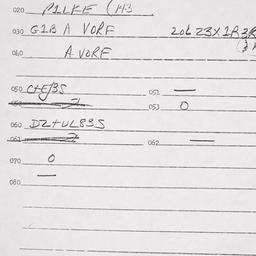 020 PILKE (M3
030 G1B A VORF 206 23X1R3R
040 A VORF
050 C+E/35 052 —
053 0
060 DZ+UL835
061 062 —
070 0
080 —